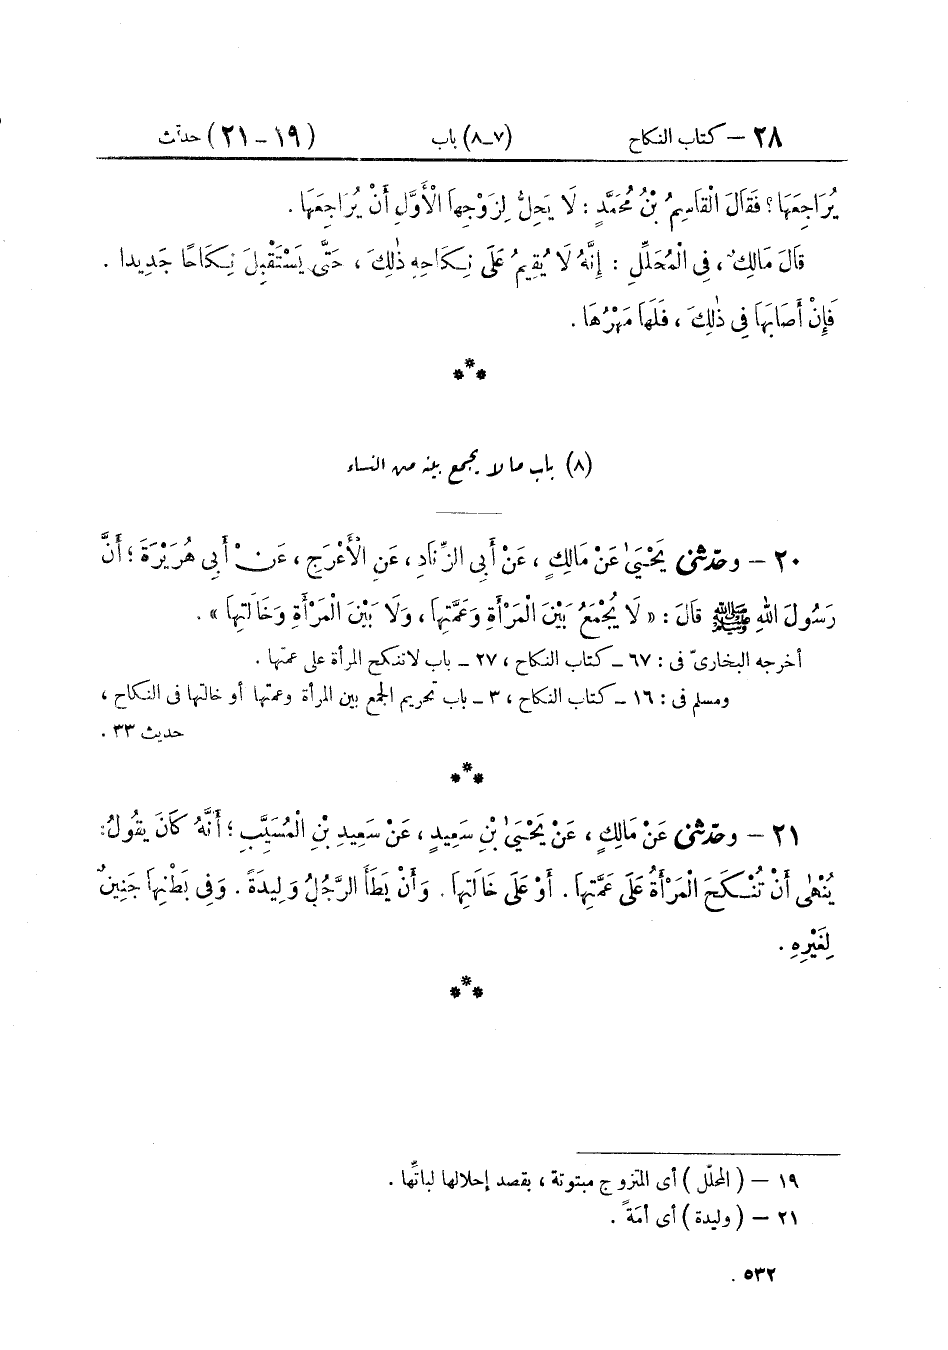 ٢٨ – كتاب النكاح (٧ــ٨) باب (١٩ – ٢١) حديث
يُرَاجِعَهَا؟ فَقَالَ الْقَاسِمُ بْنُ مُحَمَّدٍ : لَا يَحِلُّ لِزَوْجِهَا الْأَوَّلِ أَنْ يُرَاجِعَهَا .
قَالَ مَالِكٌ ، فِى الْمُحَلِّلِ : إِنَّهُ لَا يُقِيمُ عَلَى نِكَاحِهِ ذٰلِكَ ، حَتَّى يَسْتَقْبِلَ نِكَاحًا جَدِيدا .
فَإِنْ أَصَابَهَا فِى ذٰلِكَ ، فَلَهَا مَهْرُهَا .
***
(٨) باب ما لا يجمع بينه من النساء
٢٠ – وحدّثنى يَحْيَىٰ عَنْ مَالِكٍ ، عَنْ أَبِى الزِّنَادِ ، عَنِ الْأَعْرَجِ ، عَنْ أَبِى هُرَيْرَةَ ؛ أَنَّ
رَسُولَ اللهِ ﷺ قَالَ : « لَا يُجْمَعُ بَيْنَ الْمَرْأَةِ وَعَمَّتِهَا ، وَلَا بَيْنَ الْمَرْأَةِ وَخَالَتِهَا » .
أخرجه البخارىّ فى : ٦٧ ــ كتاب النكاح ، ٢٧ ــ باب لاتنكح المرأة على عمتها .
ومسلم فى : ١٦ ــ كتاب النكاح ، ٣ ــ باب تحريم الجمع بين المرأة وعمتها أو خالتها فى النكاح ،
حديث ٣٣ .
***
٢١ – وحدّثنى عَنْ مَالِكٍ ، عَنْ يَحْيَىٰ بْنِ سَعِيدٍ ، عَنْ سَعِيدِ بْنِ الْمُسَيَّبِ ؛ أَنَّهُ كَانَ يَقُولُ :
يُنْهَى أَنْ تُنْكَحَ الْمَرْأَةُ عَلَى عَمَّتِهَا . أَوْ عَلَى خَالَتِهَا . وَأَنْ يَطَأَ الرَّجُلُ وَلِيدَةً . وَفِى بَطْنِهَا جَنِينٌ
لِغَيْرِهِ .
***
١٩ – ( المحلّل ) أى المتزوج مبتوتة ، بقصد إحلالها لباتِّها .
٢١ – ( وليدة ) أى أمَةً .
٥٣٢ .